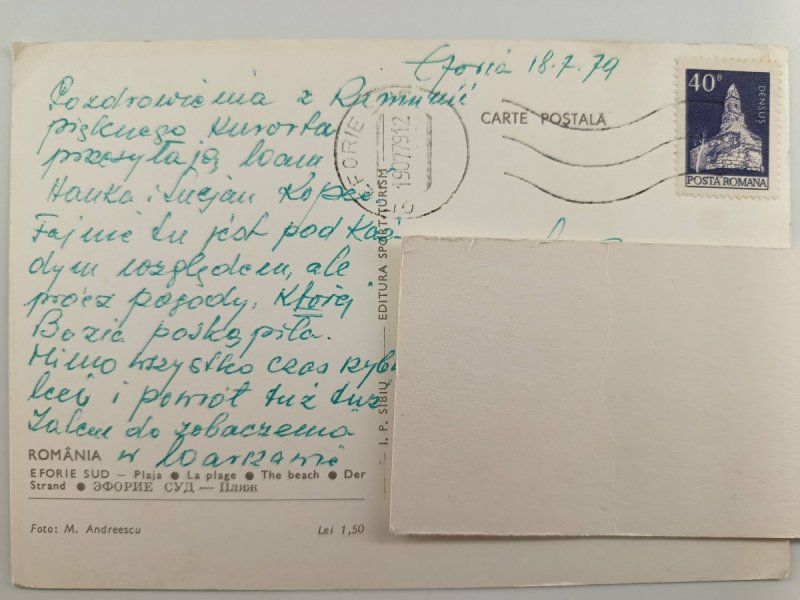 Eforia 18.7.79
Pozdrowienia z Rumunii
pięknego kurortu
przesyłają Wam
Hanka i Lucjan Kopeć
Fajnie tu jest pod każ-
dym względem, ale
prócz pogody, której
Bozia poskąpiła.
Mimo wszystko czas szyb
leci i powrót tuż tuż
Zatem do zobaczenia
w Warszawie
ROMÂNIA
EFORIE SUD — Plaja ● La plage ● The beach ● Der
Strand ● ЭФОРИЕ СУД — Пляж
Foto: M. Andreescu Lei 1,50
I. P. SIBIU — EDITURA SPORT-TURISM
EFORIE
19077912
CARTE POSTALĂ
40B
DENSUS
POSTA ROMANA